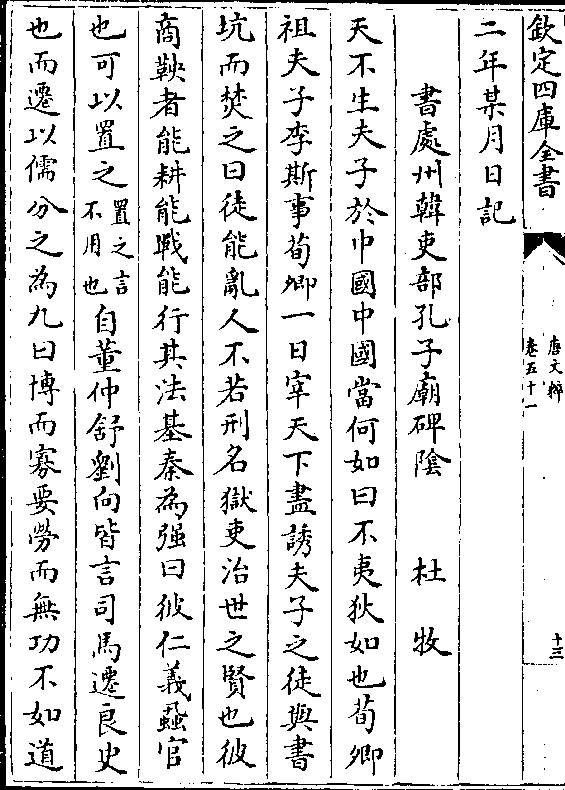 欽定四庫全書
唐文粹
卷五十一
十三
二年某月日記
書處州韓吏部孔子廟碑陰　杜牧
天不生夫子於中國中國當何如曰不夷狄如也荀卿
祖夫子李斯事荀卿一日宰天下盡誘夫子之徒與書
坑而焚之曰徒能亂人不若刑名獄吏治世之賢也彼
商鞅者能耕能戰能行其法基秦為强曰彼仁義蝨官
也可以置之置之言不用也自董仲舒劉向皆言司馬遷良史
也而遷以儒分之為九曰博而寡要勞而無功不如道